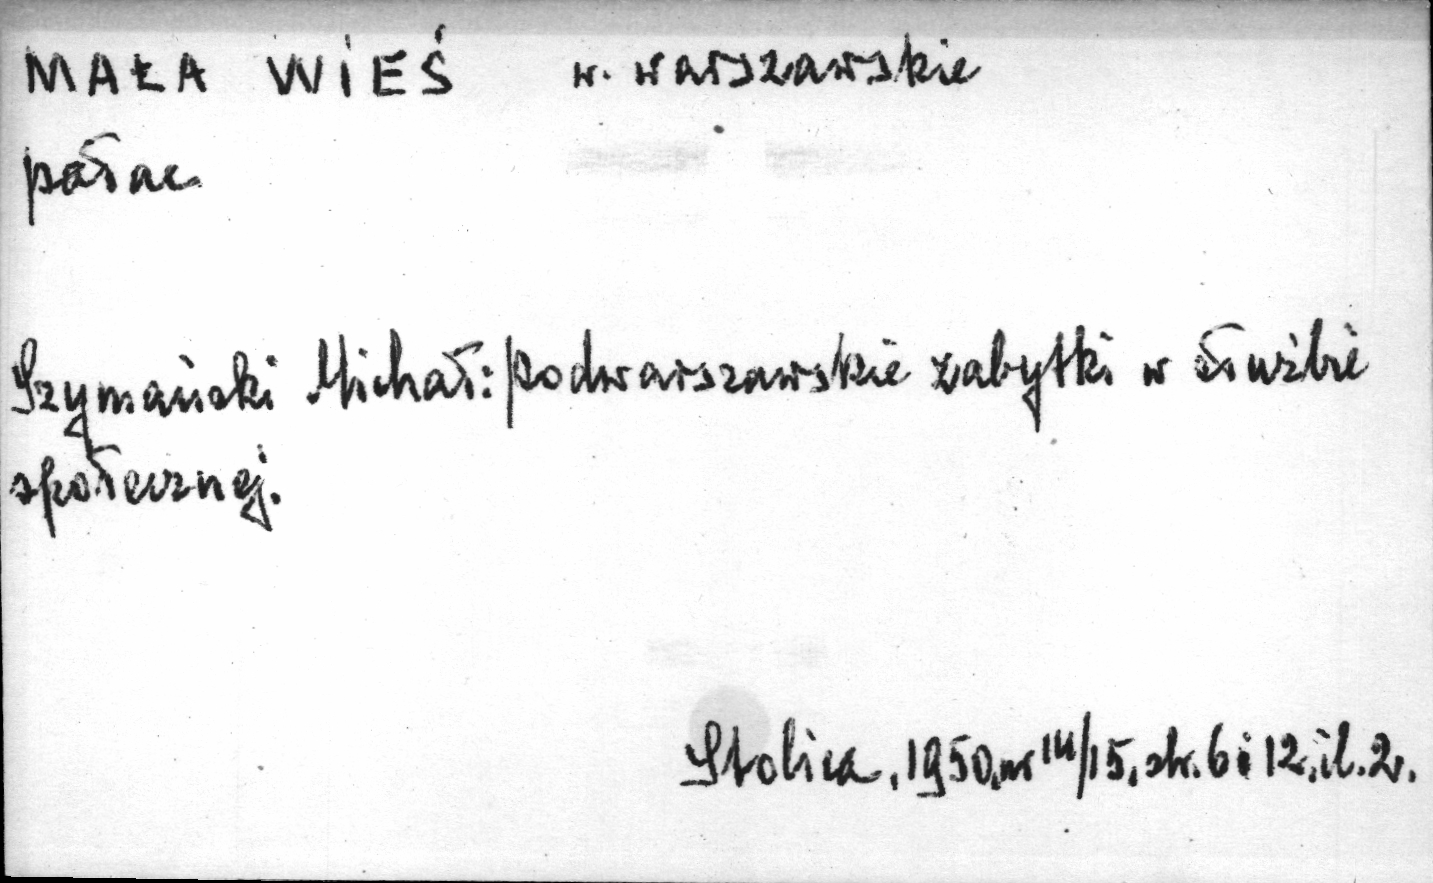 MAŁA WIEŚ w. warszawskie
pałac
Szymański Michał: Podwarszawskie zabytki w służbie
społecznej.
Stolica, 1950, nr III/15, str. 6 i 12, il. 2.